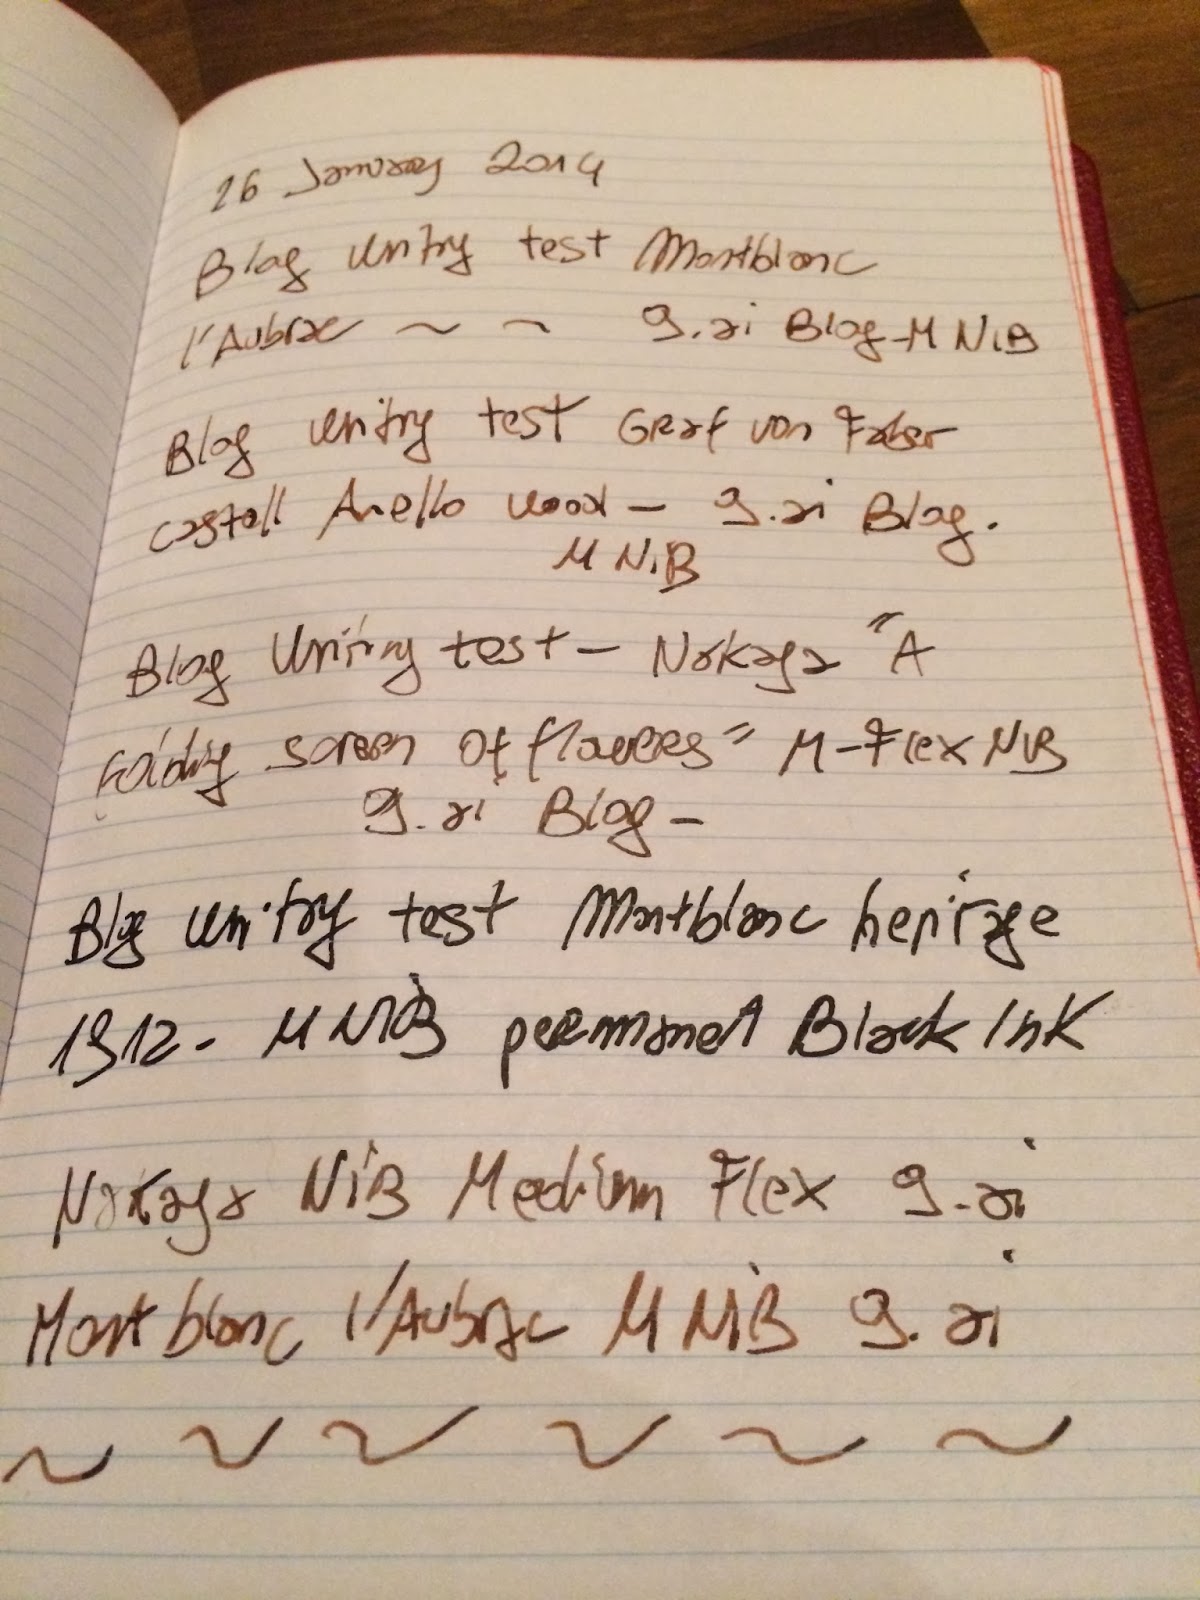 26 January 2014
Blog Writing test Montblanc
l'Aubrac ~ ~ g.ai Blog - M NiB
Blog Writing test Graf von Faber
castell Anello wood - g.ai Blog.
M NiB
Blog Writing test - Nakaya "A
Folding screen of flowers" M-Flex NiB
g.ai Blog -
Blog Writing test Montblanc heritage
1912 - M NiB permanent Black Ink
Nakaya NiB Medium Flex g.ai
Montblanc l'Aubrac M NiB g.ai